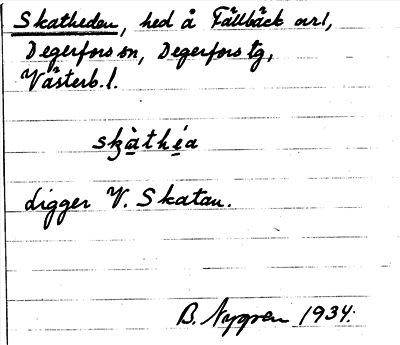 Skatheden, hed å Fällbäck avl,
Degerfors sn, Degerfors tg,
Västerb. l.
skàthéa
ligger V. Skatan.
B. Nygren 1934.